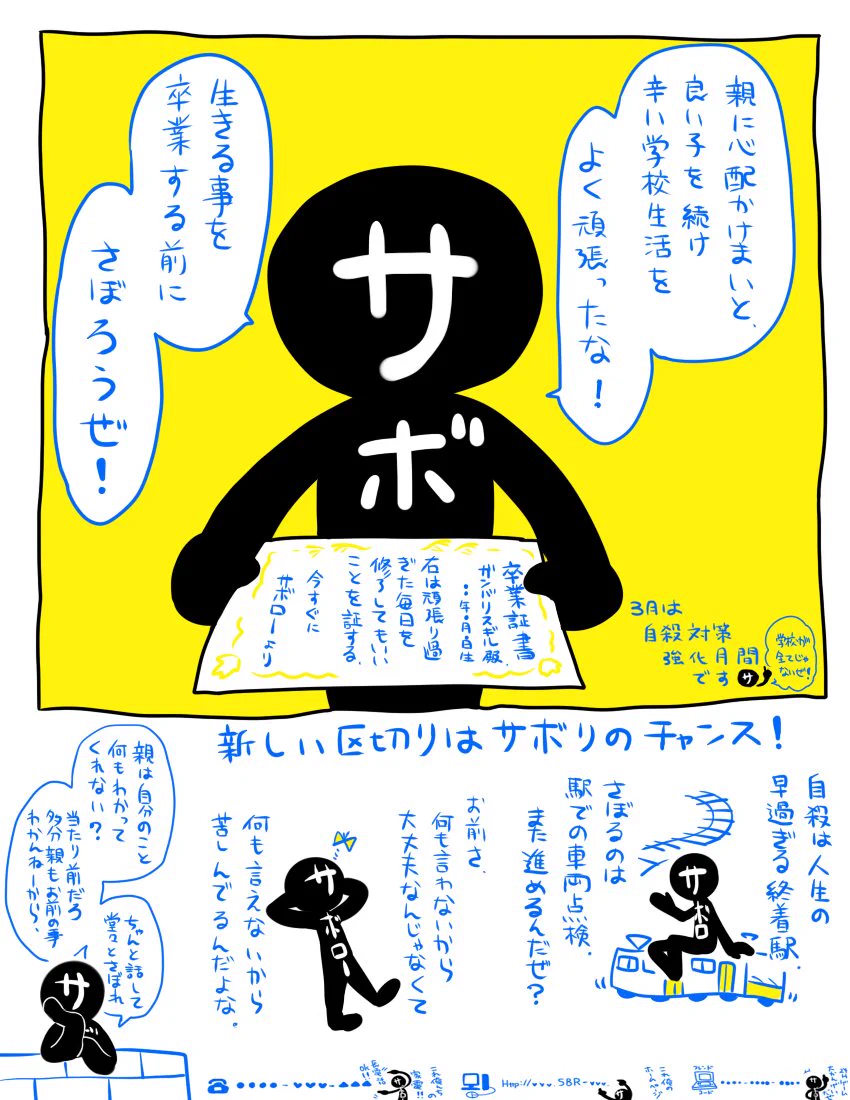 親に心配かけまいと、
良い子を続け
辛い学校生活を
よく頑張ったな！
生きる事を
卒業する前に
さぼろうぜ！
サ
ボ
卒業証書
ガンバリスギル殿
年・月・日生
右は頑張り過
ぎた毎日を
修了してもいい
ことを証する。
今すぐに
サボローより
3月は
自殺対策
強化月間
です
サ
学校が
全てじゃ
ないぜ！
新しい区切りはサボリのチャンス！
自殺は人生の
早過ぎる終着駅.
さぼるのは
駅での車両点検.
また進めるんだぜ？
サボロ
お前さ、
何も言わないから
大丈夫なんじゃなくて
何も言えないから
苦しんでるんだよな。
サボロー
親は自分のこと
何もわかって
くれない？
当たり前だろ
多分親もお前の事
わかんねーから、
ちゃんと話して
堂々とさぼれ
サボ
Http://♥♥♥.SBR-♥♥♥.
これ俺の
ホームページ
フレンド
コード